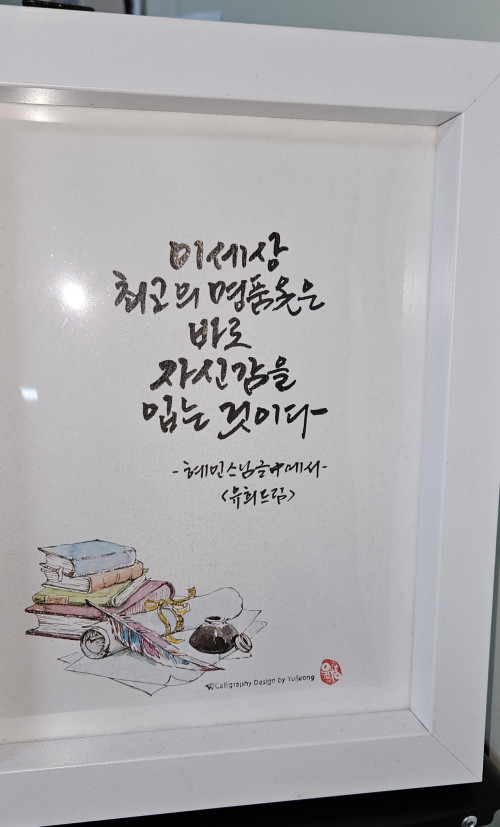 이 세상
최고의 명품 옷은
바로
자신감을
입는 것이다
-혜민스님 글 中에서-
<유희드림>
Calligraphy Design by Yujeong